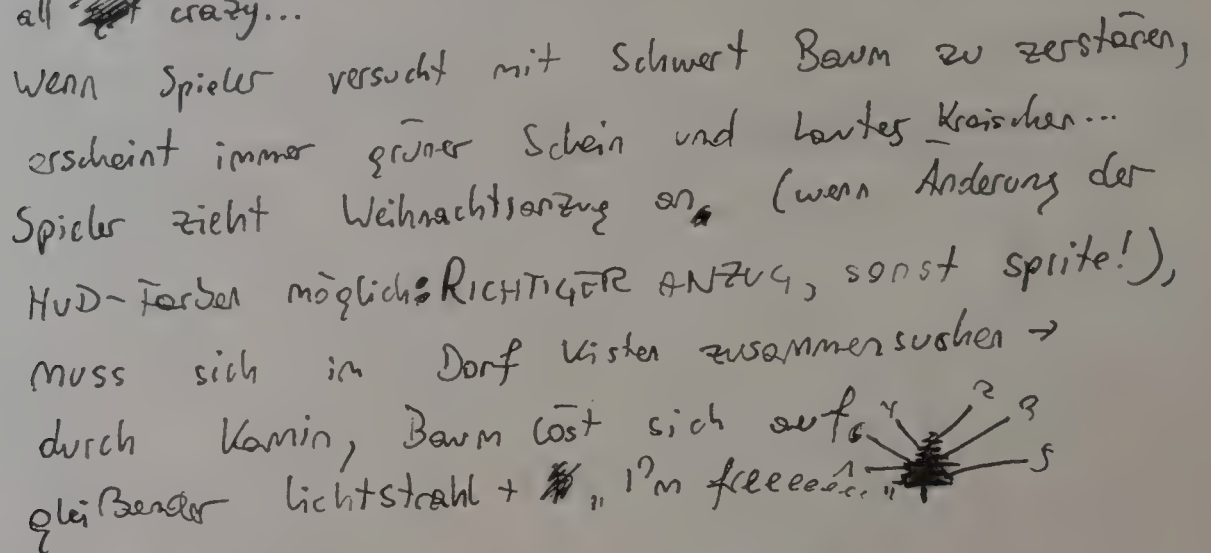 all crazy...
wenn Spieler versucht mit Schwert Baum zu zerstören,
erscheint immer grüner Schein und lautes Kreischen...
Spieler zieht Weihnachtsanzug an. (wenn Änderung der
HUD-Farben möglich: RICHTIGER ANZUG, sonst sprite!),
muss sich im Dorf Kisten zusammensuchen →
durch Kamin, Baum löst sich auf,
gleißender Lichtstrahl + „I'm freeeeee..."
4 2 3
6 1 5